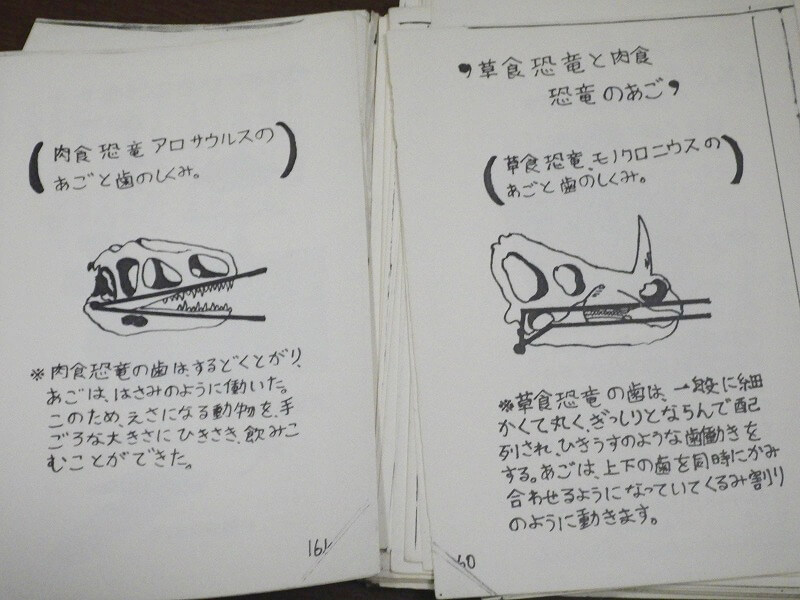 ,草食恐竜と肉食
恐竜のあご,
(草食恐竜、モノクロニウスの
あごと歯のしくみ。)
※草食恐竜の歯は、一般に細
かくて丸く、ぎっしりとならんで配
列され、ひきうすのような歯働きを
する。あごは、上下の歯を同時にかみ
合わせるようになっていてくるみ割り
のように動きます。
60
(肉食恐竜アロサウルスの
あごと歯のしくみ。)
※肉食恐竜の歯は、するどくとがり、
あごは、はさみのように働いた。
このため、えさになる動物を、手
ごろな大きさにひきさき、飲みこ
むことができた。
161